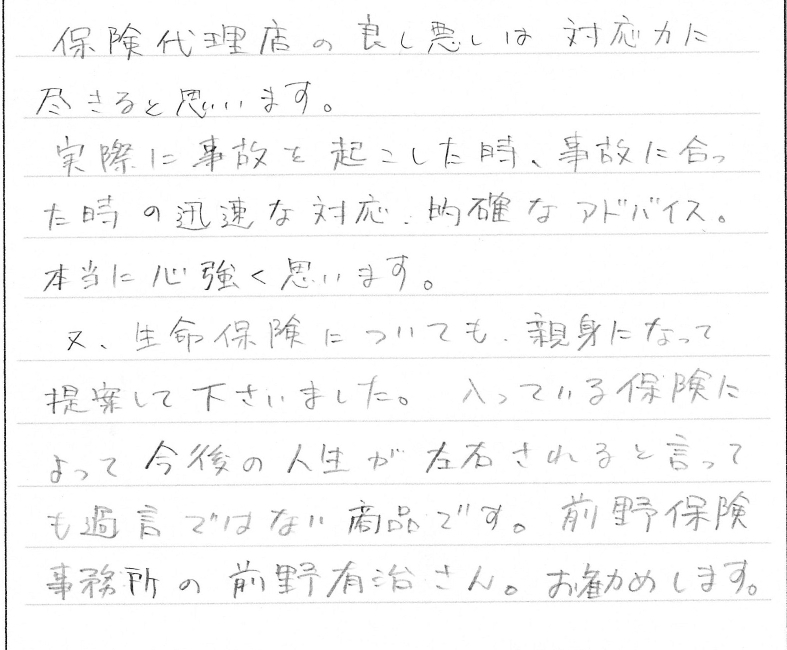 保険代理店の良し悪しは 対応力に
尽きると思います。
実際に事故を起こした時、事故に合っ
た時の迅速な対応、的確なアドバイス。
本当に心強く思います。
又、生命保険についても、親身になって
提案して下さいました。入っている保険に
よって今後の人生が左右されると言って
も過言ではない商品です。前野保険
事務所の前野有治さん。お勧めします。